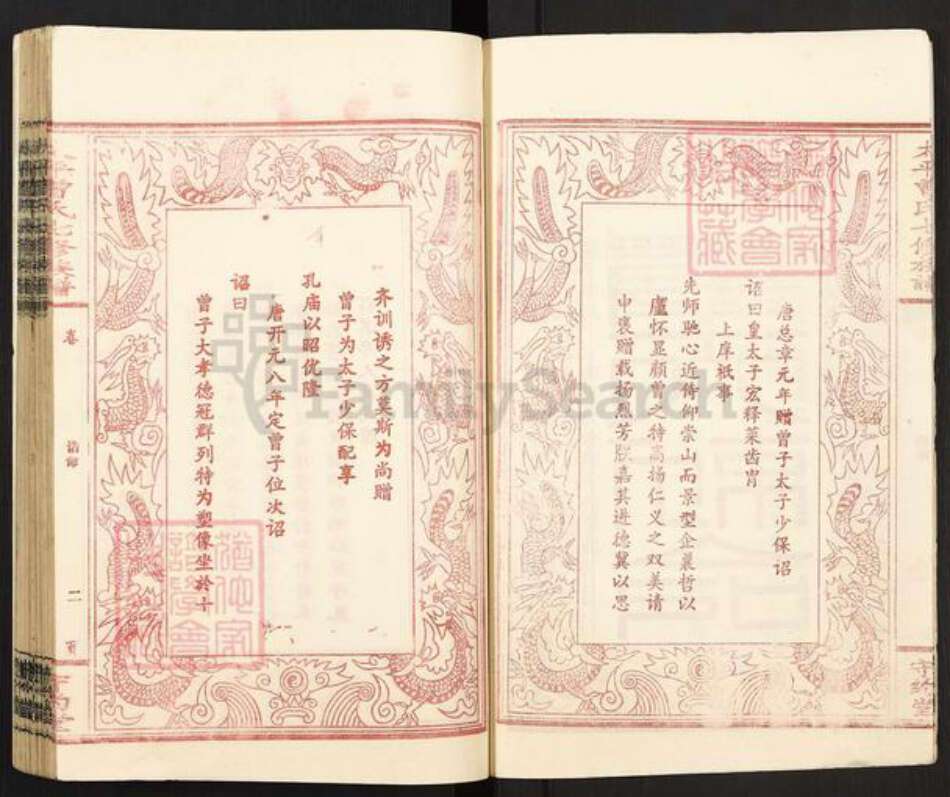 唐总章元年赠曾子太子少保诏
诏曰皇太子宏释菜齿胄
上庠祗事
先师驰心近侍仰崇山而景型企曩哲以
庐怀显颜曾之特高扬仁义之双美请
申褒赠载扬烈芳朕嘉其进德冀以思
齐训诱之方莫斯为尚赠
曾子为太子少保配享
孔庙以昭优隆
唐开元八年定曾子位次诏
诏曰
曾子大孝德冠群列特为塑像坐於十
卷
二
FamilySearch